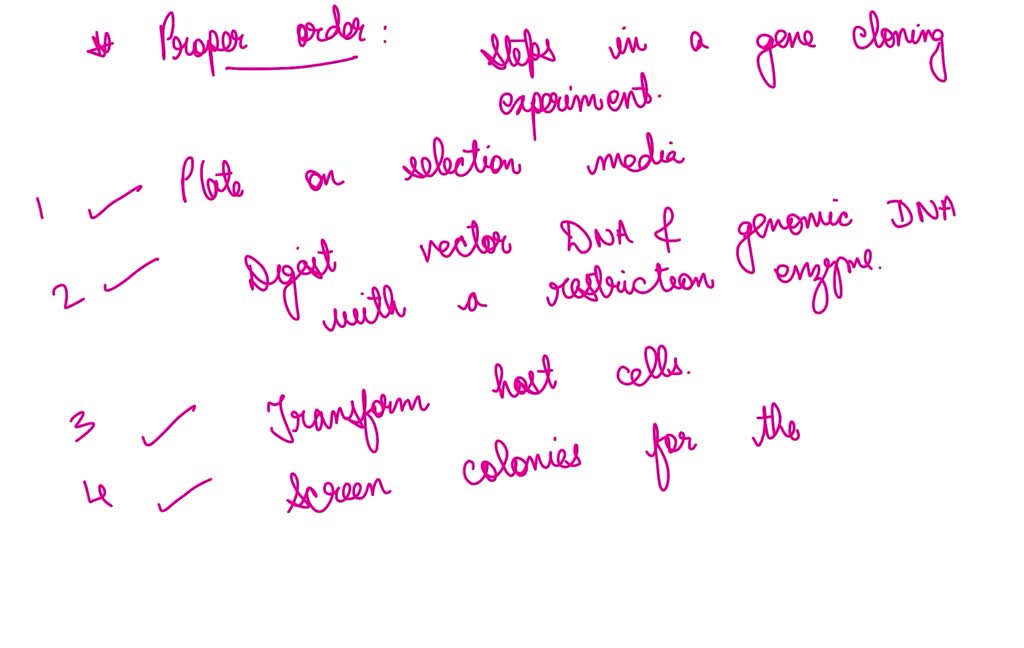 * Proper order: Steps in a gene cloning
experiment.
1 ✓ Plate on selection media
2 ✓ Digest vector DNA & genomic DNA
with a restriction enzyme.
3 ✓ Transform host cells.
4 ✓ Screen colonies for the